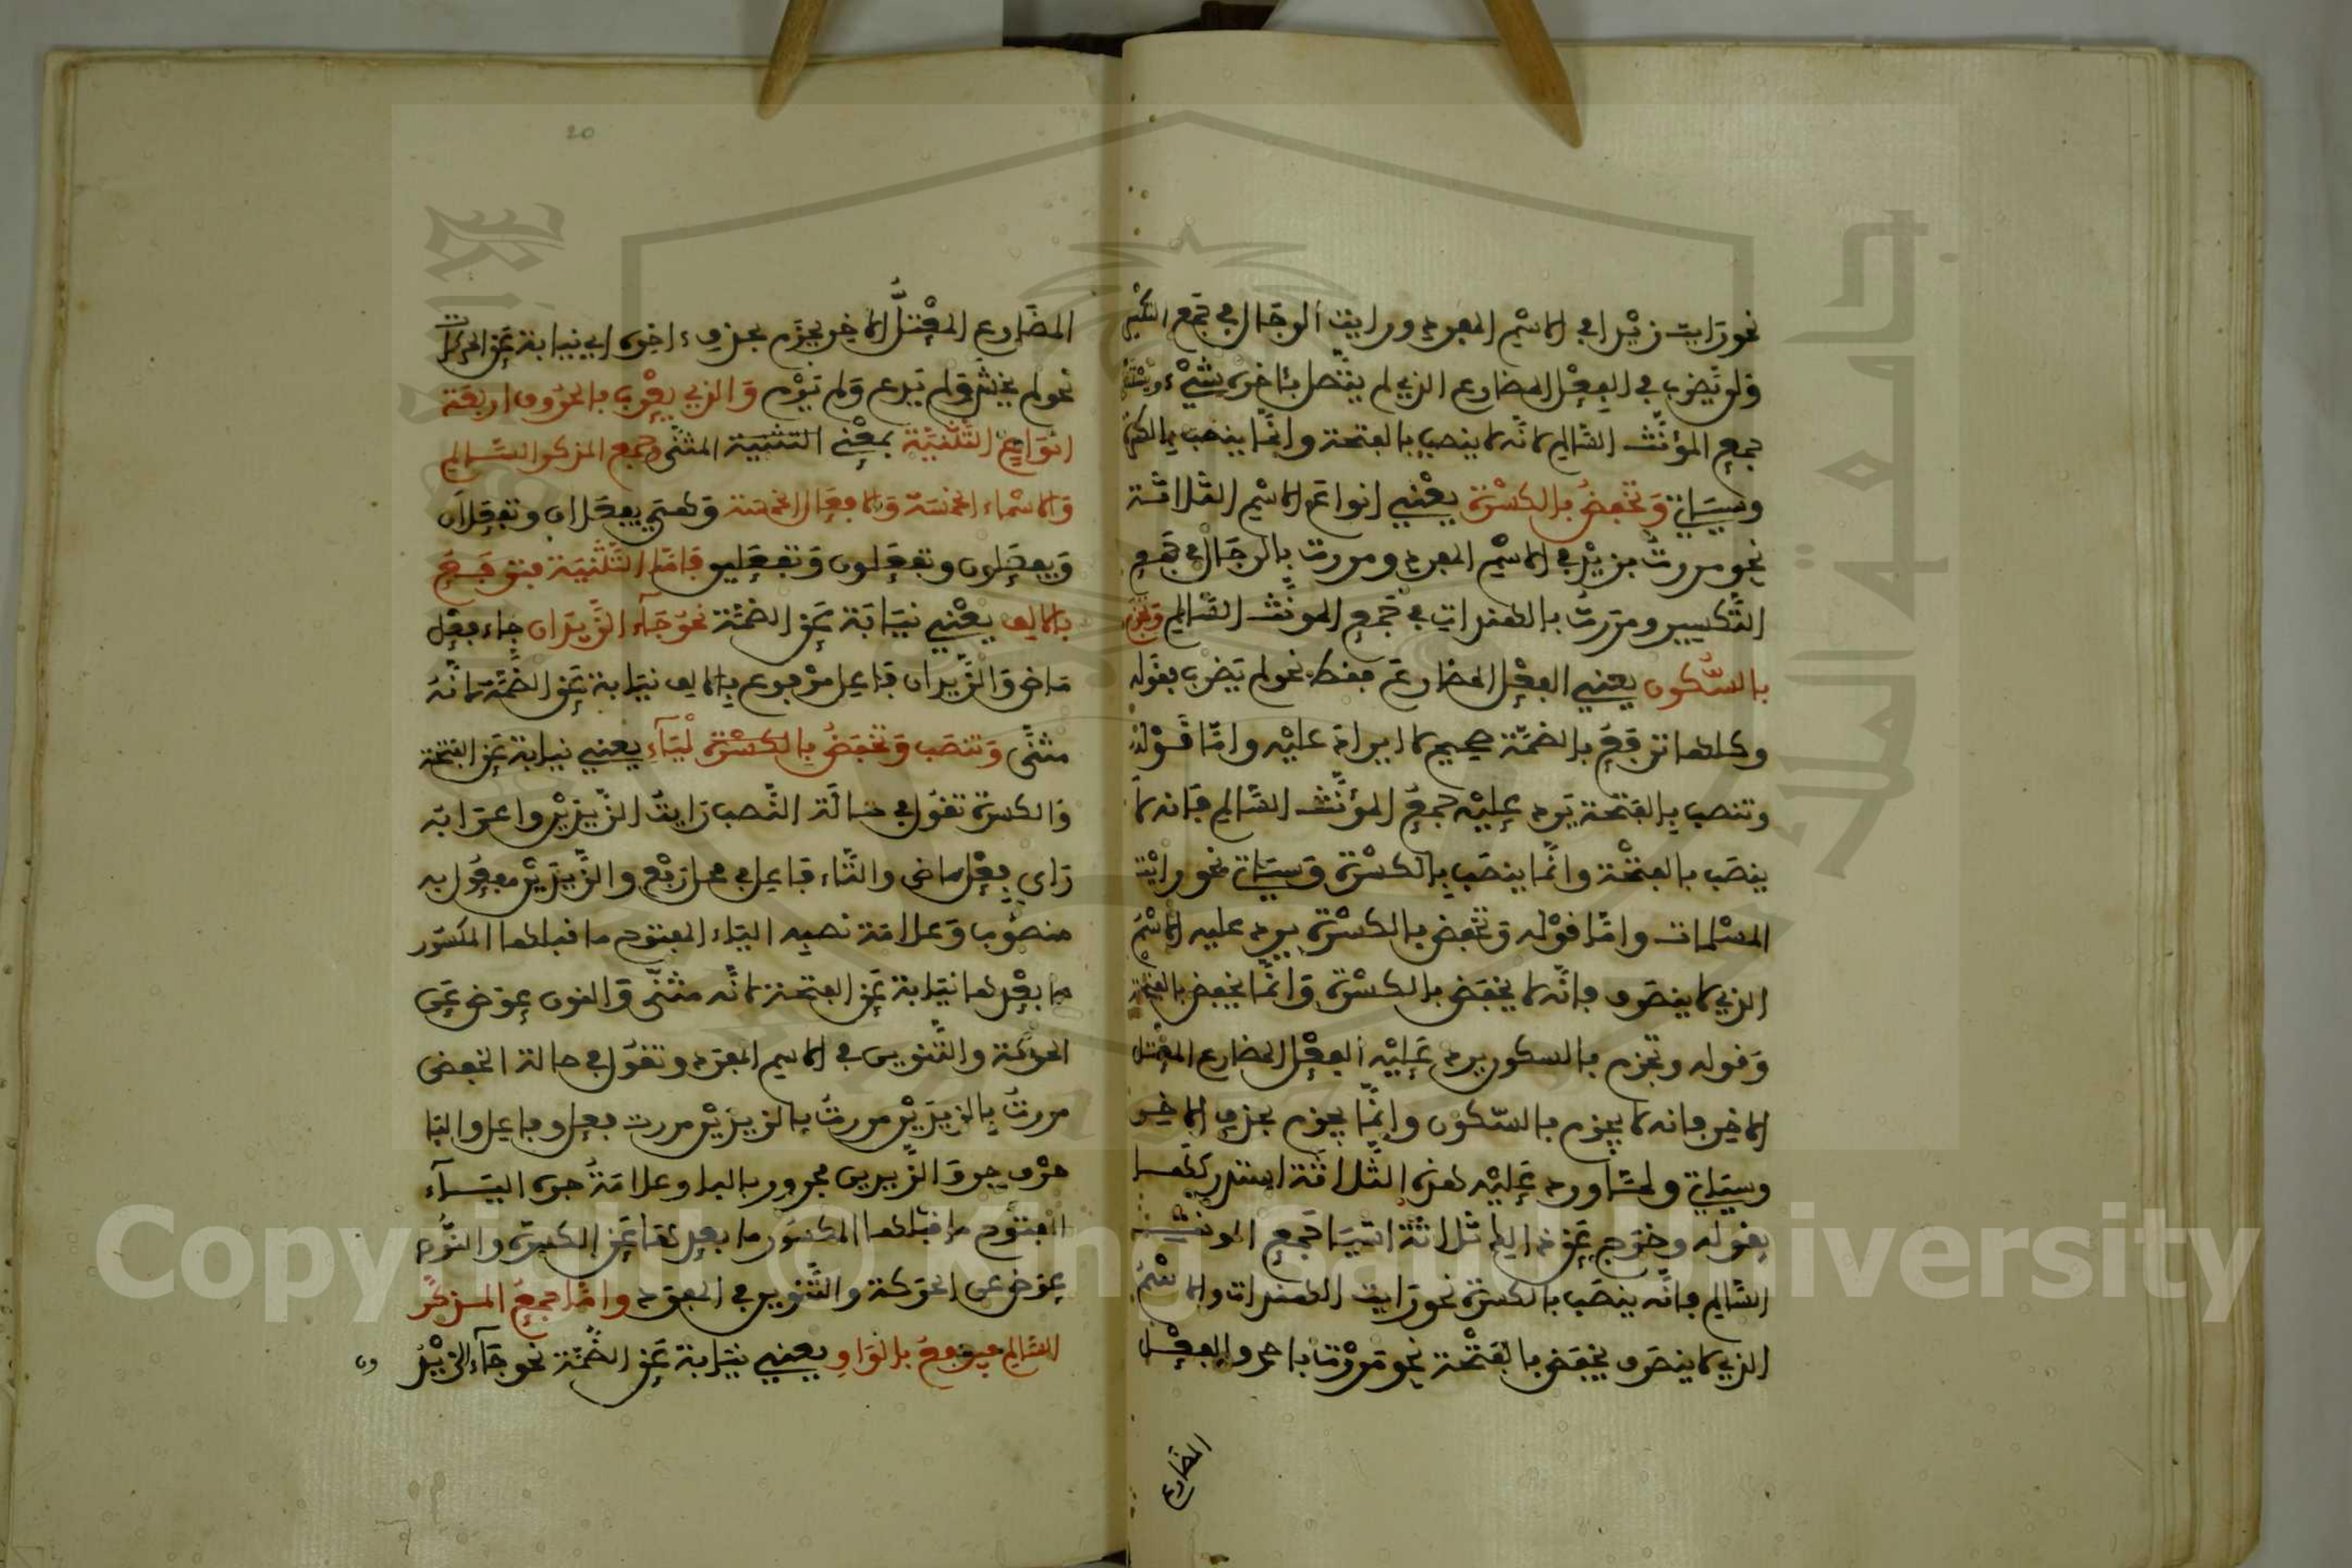 نحو رايت زيدا في الاسم المفرد ورايت الرجال في جمع التكسير
ولن نضرب في الفعل المضارع الذي لم يتصل بئاخره شيء ويستثنى
جمع المؤنث السالم لانه لا ينصب بالفتحة وانما ينصب بالكسرة
وسياتي وتخفض بالكسرة يعني انواع الاسم الثلاثة
نحو مررت بزيد في الاسم المفرد ومررت بالرجال في جمع
التكسير ومررت بالهندات في جمع المونث السالم وتجزم
بالسكون يعني الفعل المضارع فقط نحو لم يضرب فقوله
وكلها ترفع بالضمة صحيح لا ايراد عليه واما قوله
وتنصب بالفتحة يرد عليه جمع المؤنث السالم فانه لا
ينصب بالفتحة وانما ينصب بالكسرة وسياتي نحو رايت
المسلمات واما قوله وتخفض بالكسرة يرد عليه الاسم
الذي لا ينصرف فانه لا يخفض بالكسرة وانما يخفض بالفتحة
وقوله وتجزم بالسكون يرد عليه الفعل المضارع المعتل
الاخر فانه لا يجزم بالسكون وانما يجزم بحذف الاخر
وسياتي ولما ورد عليه هذه الثلاثة استدركها
بقوله وخرج عن ذالك ثلاثة اشيا جمع المونث
السالم فانه ينصب بالكسرة نحو رايت الهندات والاسم
الذي لا ينصرف يخفض بالفتحة نحو مررت باحمد والفعل
المضارع
20
المضارع المعتل الاخر يجزم بحذف ءاخره اي نيابة عن الحركات
نحو لم يخش ولم يدع ولم يرم والذي يعرب بالحروف اربعة
انواع التثنية بمعنى التثنية المثنى وجمع المذكر السالم
والاسماء الخمسة والافعال الخمسة وهي يفعلان وتفعلان
ويفعلون وتفعلون وتفعلين فاما التثنية فترفع
بالالف يعني نيابة عن الضمة نحو جآء الزيدان جاء فعل
ماض والزيدان فاعل مرفوع بالالف نيابة عن الضمة لانه
مثنى وتنصب وتخفض بالكسرة ليآء يعني نيابة عن الفتحة
والكسرة تقول في حالة النصب رايت الزيدين واعرابه
راي فعل ماض والتاء فاعل في محل رفع والزيدين مفعول به
منصوب وعلامة نصبه الياء المفتوح ما قبلها المكسور
ما بعدها نيابة عن الفتحة لانه مثنى والنون عوض عن
الحركة والتنوين في الاسم المفرد وتقول في حالة الخفض
مررت بالزيدين مررت بالزيدين مررت فعل وفاعل والبا
حرف جر والزيدين مجرور بالبا وعلامة جره اليآء
المفتوح ما قبلها المكسور ما بعدها عن الكسرة والنون
عوض عن الحركة والتنوين في المفرد واما جمع المذكر
السالم فيرفع بالواو يعني نيابة عن الضمة نحو جآء الزيد
ون
Copyright © King Saud University